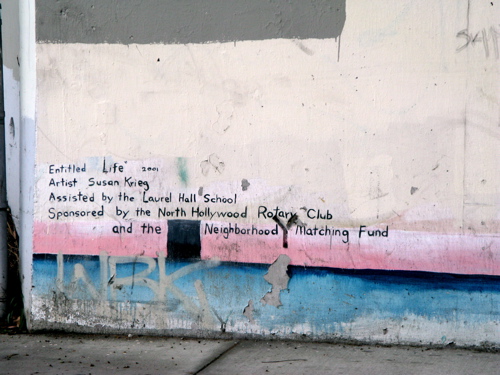 Entitled "Life" 2001
Artist Susan Krieg
Assisted by the Laurel Hall School
Sponsored by the North Hollywood Rotary Club
and the Neighborhood Matching Fund